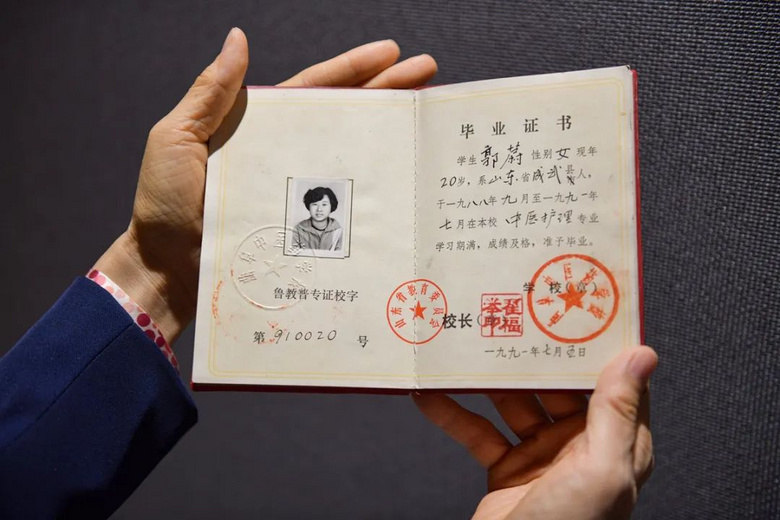 鲁教普专证校字
第 910020 号
山东省教育委员会
毕业证书
学生 郭蔚 性别 女 现年
20岁，系 山东 省 成武 县人，
于一九八八年九月至一九九一年
七月在本校 中医护理 专业
学习期满，成绩及格，准予毕业。
学校（章）
校长
一九九一年七月五日